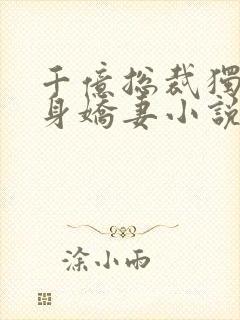 千億总裁獨
身嬌妻小說
涂小雨